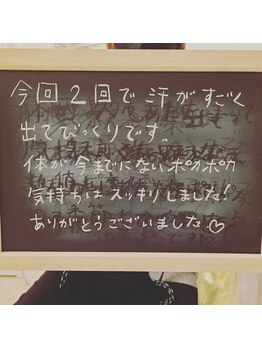 今回2回で汗がすごく
出てびっくりです。
体が今までにないポカポカ
気持ちはスッキリしました!
ありがとうございました♡